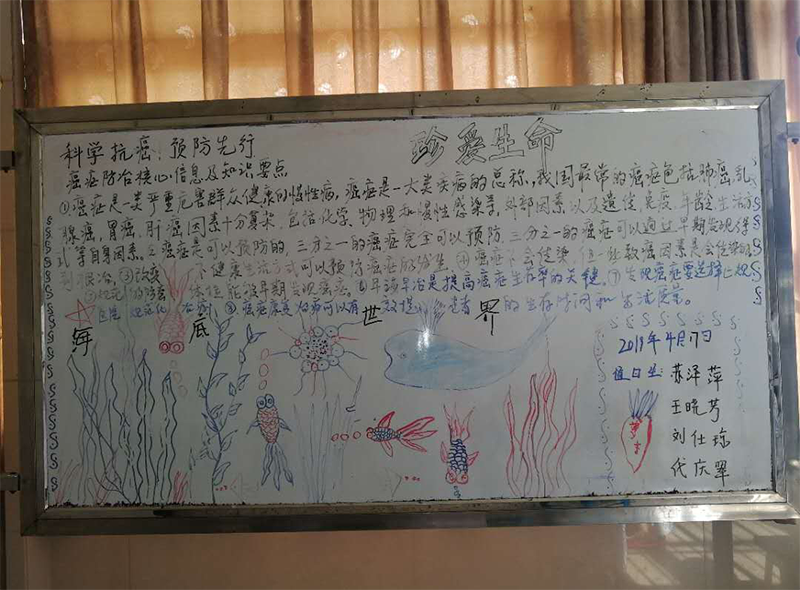 珍爱生命
科学抗癌，预防先行
癌症防治核心信息及知识要点
①癌症是一类严重危害群众健康的慢性病，癌症是一大类疾病的总称，我国最常的癌症包括肺癌，乳
腺癌，胃癌，肝癌因素十分复杂，包括化学，物理和慢性感染等，外部因素，以及遗传，免疫，年龄，生活方
式等自身因素，②癌症是可以预防的，三分之一的癌症完全可以预防，三分之一的癌症可以通过早期发现得
到根治，③改变 不健康生活方式可以预防癌症的发生，④癌症不会传染，但一些致癌因素是会传染的
⑤规范的防癌体检能够早期发现癌症，⑥早诊早治是提高癌症生存率的关键，⑦发现癌症要选择正规
医院 规范化治疗，⑧癌症康复治疗可以有效提 患者的生存时间和生活质量。
海底世界
2019年4月17日
值日生：苏泽萍
王晓芳
刘仕琼
代庆翠
萝卜